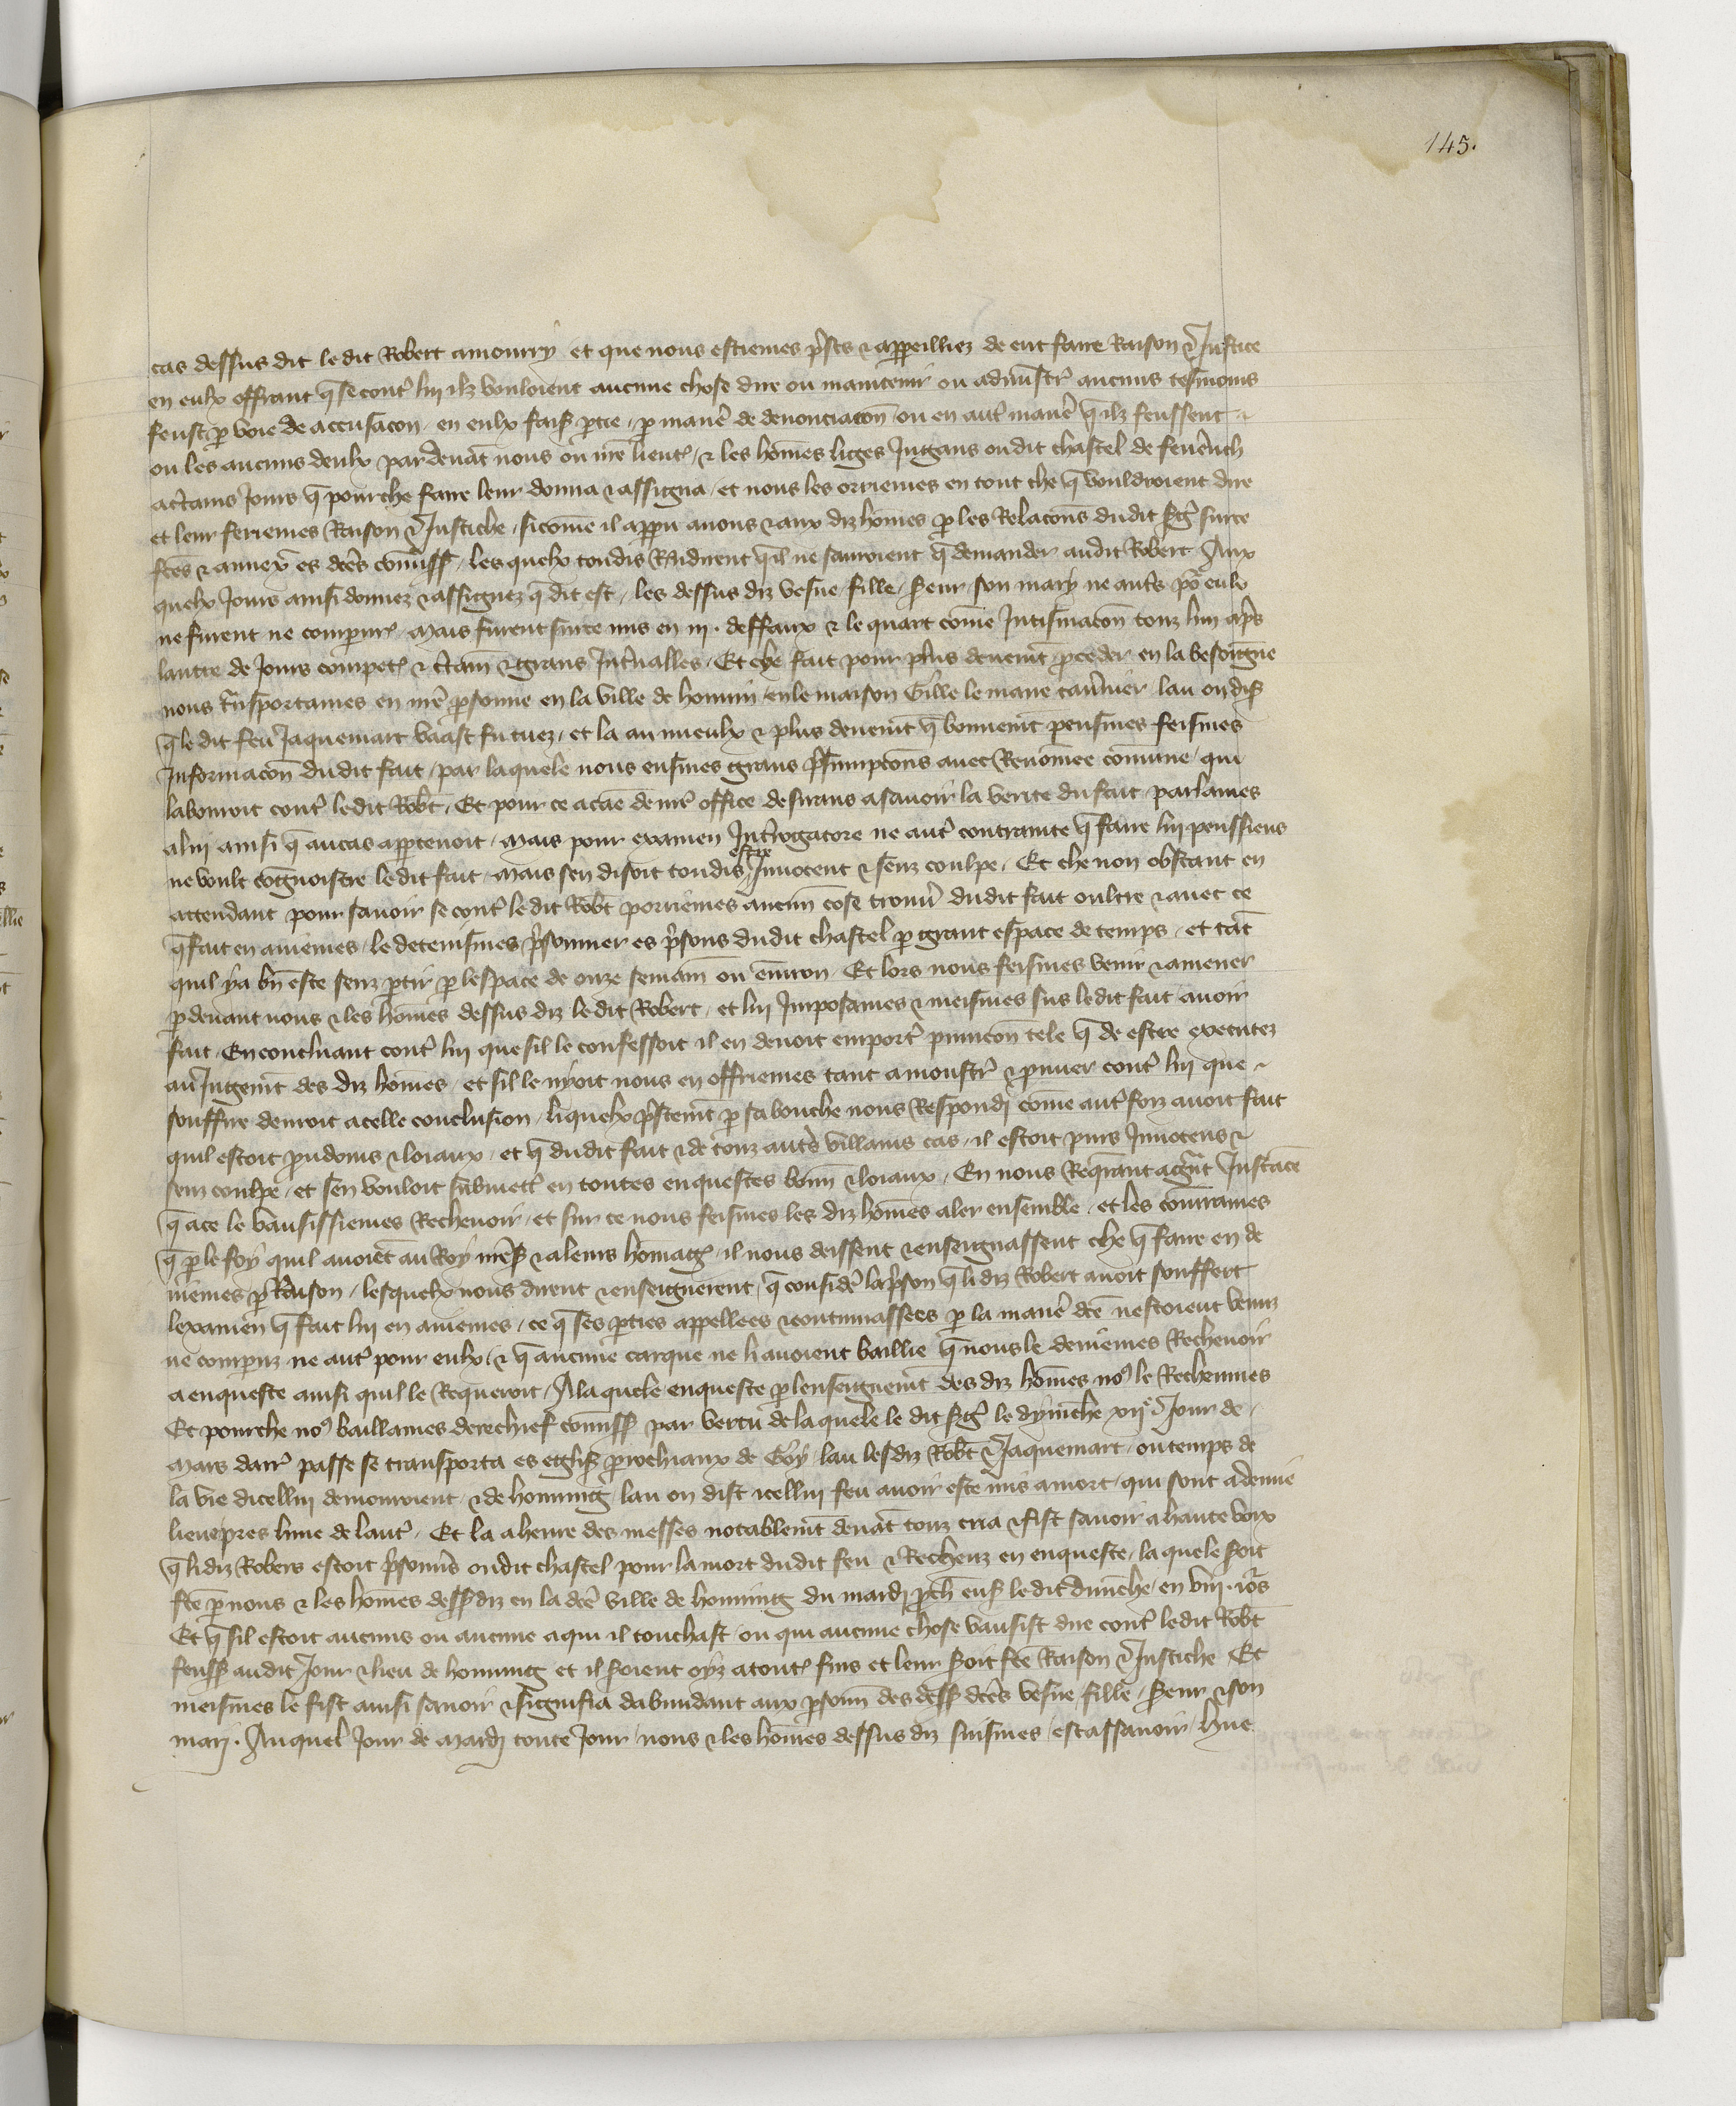 145.
cas dessus dit ledit Robert amourry et que nous estiemes psts & appeilliez de eut faire Raison & Justice
en eulx offrant q se cont lui ilz vouloient aucune chose dire ou maintenir ou admistr aucuns tesmoins
feust p voie de accusacon en eulx fais ptie p mane de denonciacon ou en aut mane q ilz feussent
ou les aucuns deulx par devat nous ou nre lieut & les homes liges Jugans oudit chastel de
actains Jours q pourche faire leur donna & assigna et nous les orriemes en tout che q vouldroient dire
et leur feriemes Raison & Justiche sicome il appu avons & aux diz homes p les Relacons dudit Sgr surce
fces & annex es dces comiss les quelx toudis Rndirent qil ne savroient q demander audit Robert Aux
quelx Jours ainsi donnez & assignez q dit est les dessus diz vesve fille Seur son mary ne auts po eulx
ne furent ne comparur mais furent surce mis en iij. deffaux & le quart come Intimacon touz lun aps
lautre de Jours compet & ctain & grans Intvalles Et che fait pour plus deuemt pceder en la besoingne
nous tnsportames en nre psonne en la ville de honnin en le maison Gille le mane tavnier lau on dis
q le dit feu Jaquemart vaast fu tuez et la au mieulx & plus deuemt q bonnemt peusmes feismes
Informacon dudit fait par laquele nous eusmes grans psumptcons avec Renomee comune qui
labouroit cont ledit Robt Et pour ce acae de nre office desirans asavoir la verite du fait parlames
alui ainsi q au cas appartenoit mais pour examen Introgatore ne aut contrainte q faire lui peussiens
ne voult cognoistre ledit fait mais sen disoit toudis estre Innocent & senz coulpe Et che non obstant en
attendant pour savoir se cont ledit Robt porriemes aucun cose trouv dudit fait oultre & avec ce
q fait en aviemes le detenismes psonnier es psons dudit chastel p grant espace de temps et tat
quil ya bn este senz ptir p lespace de onze semain ou eniron Et lors nous feismes venir & amener
pdevant nous & les homes dessus diz ledit Robert et lui Imposames & meismes sus ledit fait avoir
fait En concluant cont lui que sil le confessoit il en devoit emport punicon tele q de estre executez
au Jugemt des diz homes et sil le nyoit nous en offriemes tant a monstr & pruver cont lui que
souffire devroit a celle conclusion liquelx pstemt p sa bouche nous Respondi come autfoiz avoit fait
quil estoit preudoms & loiaux et q dudit fait & de touz auts villains cas il estoit purs Innocens &
senz coulpe et sen vouloit submett en toutes enquestes bonn & loiaux En nous Reqrant a grnt Instace
q ace le vausissiemes Rechevoir et sur ce nous feismes les diz homes aler ensemble et les coniurames
q p le foy quil avoiet au Roy nres & a leurs homag il nous deissent & enseignassent che q faire en de
viemes p Raison lesquelx nous dirent & enseignerent q consider la pson q li diz Robert avoit souffert
lexamen q fait lui en aviemes ce q ses pties appellees & contumassees p la mane dce nestoient venuz
ne comparuz ne aut pour eulx & q aucune carque ne li avoient baillie q nous le deviemes Rechevoir
a enqueste ainsi quil le Requeroit A laquele enqueste p lenseignemt des diz homes no le Recheumes
Et pourche no baillames derechief comiss par vertu de laquele le dit Sgr le dymenche xije Jour de
mars darr passe se transporta es eglis prochiaux de Goy lau lesdiz Robt & Jaquemart ou temps de
la vie dicellui demouroient & de honning lau on dist icellui feu avoir este mis a mort qui sont a demie
lieue pres lune de laut Et la a heure des messes notablemt devat touz cria & fist savoir a haute voix
q li diz Robers estoit psonnis oudit chastel pour la mort dudit feu & Recheuz en enqueste la quele Soit
fce p nous & les homes dess diz en la dce ville de honning du mardi pch ens ledit dimenche en viij. iors
Et q sil estoit aucuns ou aucune a qui il touchast ou qui aucune chose vausist dire cont ledit Robt
feuss audit Jour & lieu de honning et il Soient oyz a tout fins et leur Soit fce Raison & Justiche Et
meismes le fist ainsi savoir & signifia dabundant aux psonn des dess dces vesve fille Seur & son
mari. Auquel Jour de mardi toute Jour nous & les homes dessus diz fuismes cestassavoir hue